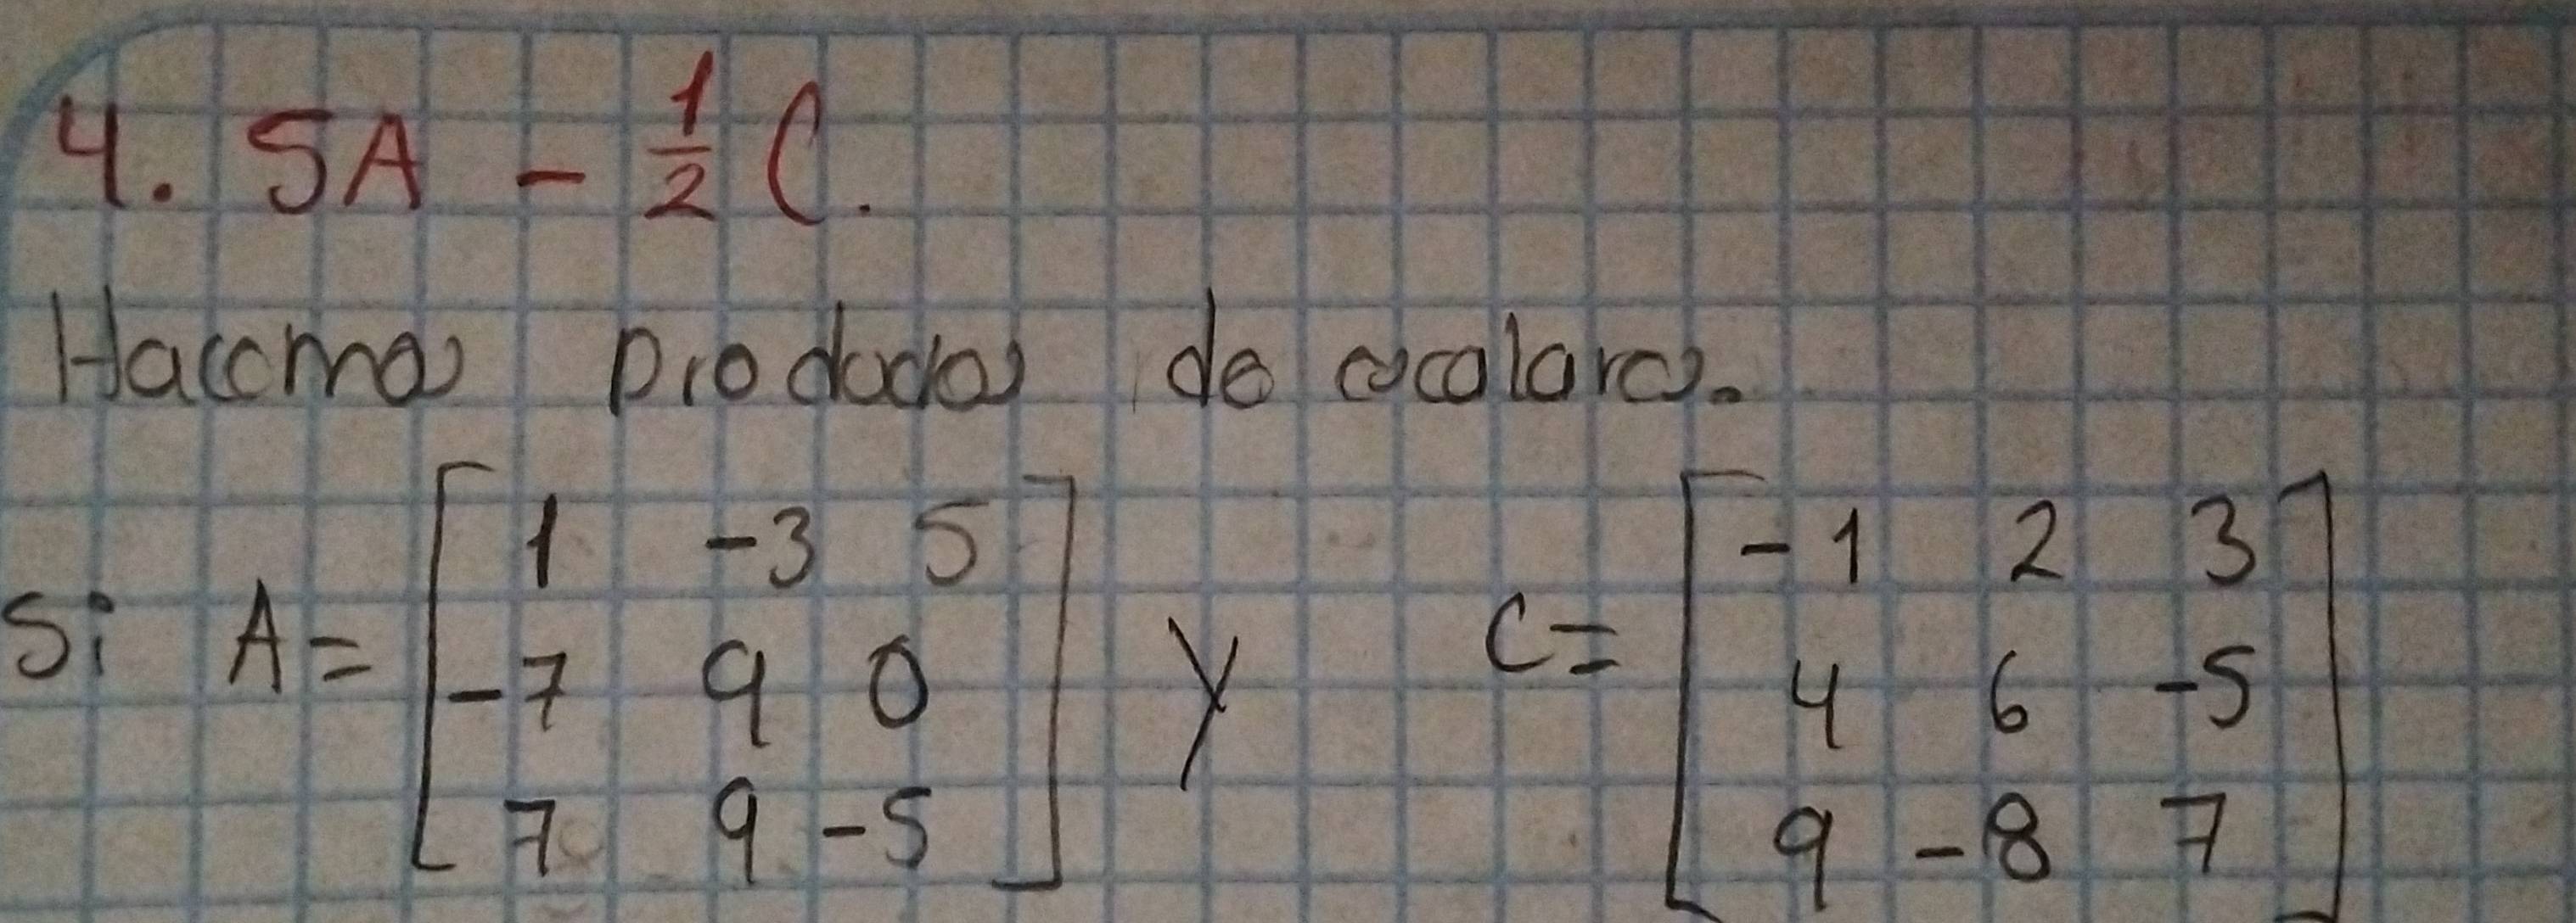 4. 5A - 1/2 C.
Hacemos productos de escalares.
Si A = [ 1 -3 5 ; -7 9 0 ; 7 9 -5 ] y C = [ -1 2 3 ; 4 6 -5 ; 9 -8 7 ]